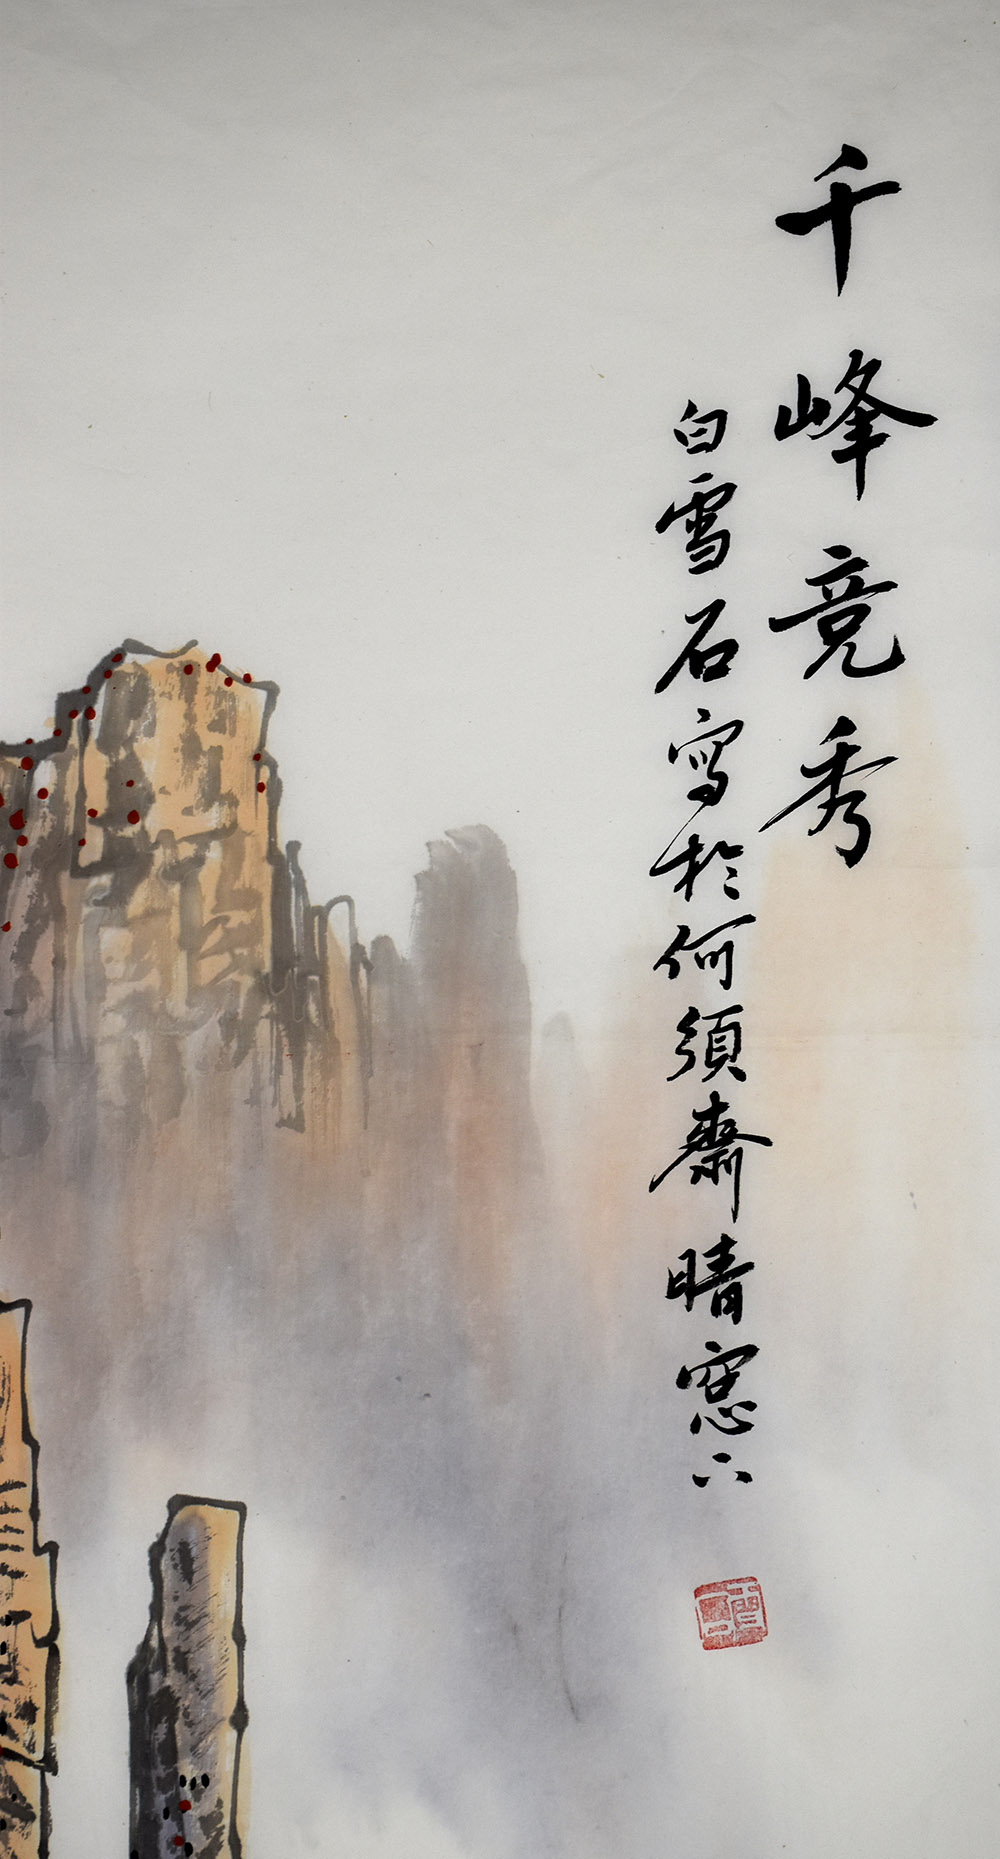 千峰竞秀
白雪石写於何須斋晴窓下